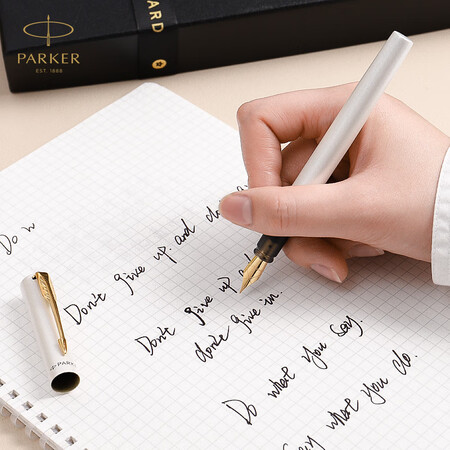 PARKER
EST. 1888
ARD
Do w
Don't give up. and do
Don't give up a
don't give in.
Do what you say.
say what you do.
PARKER